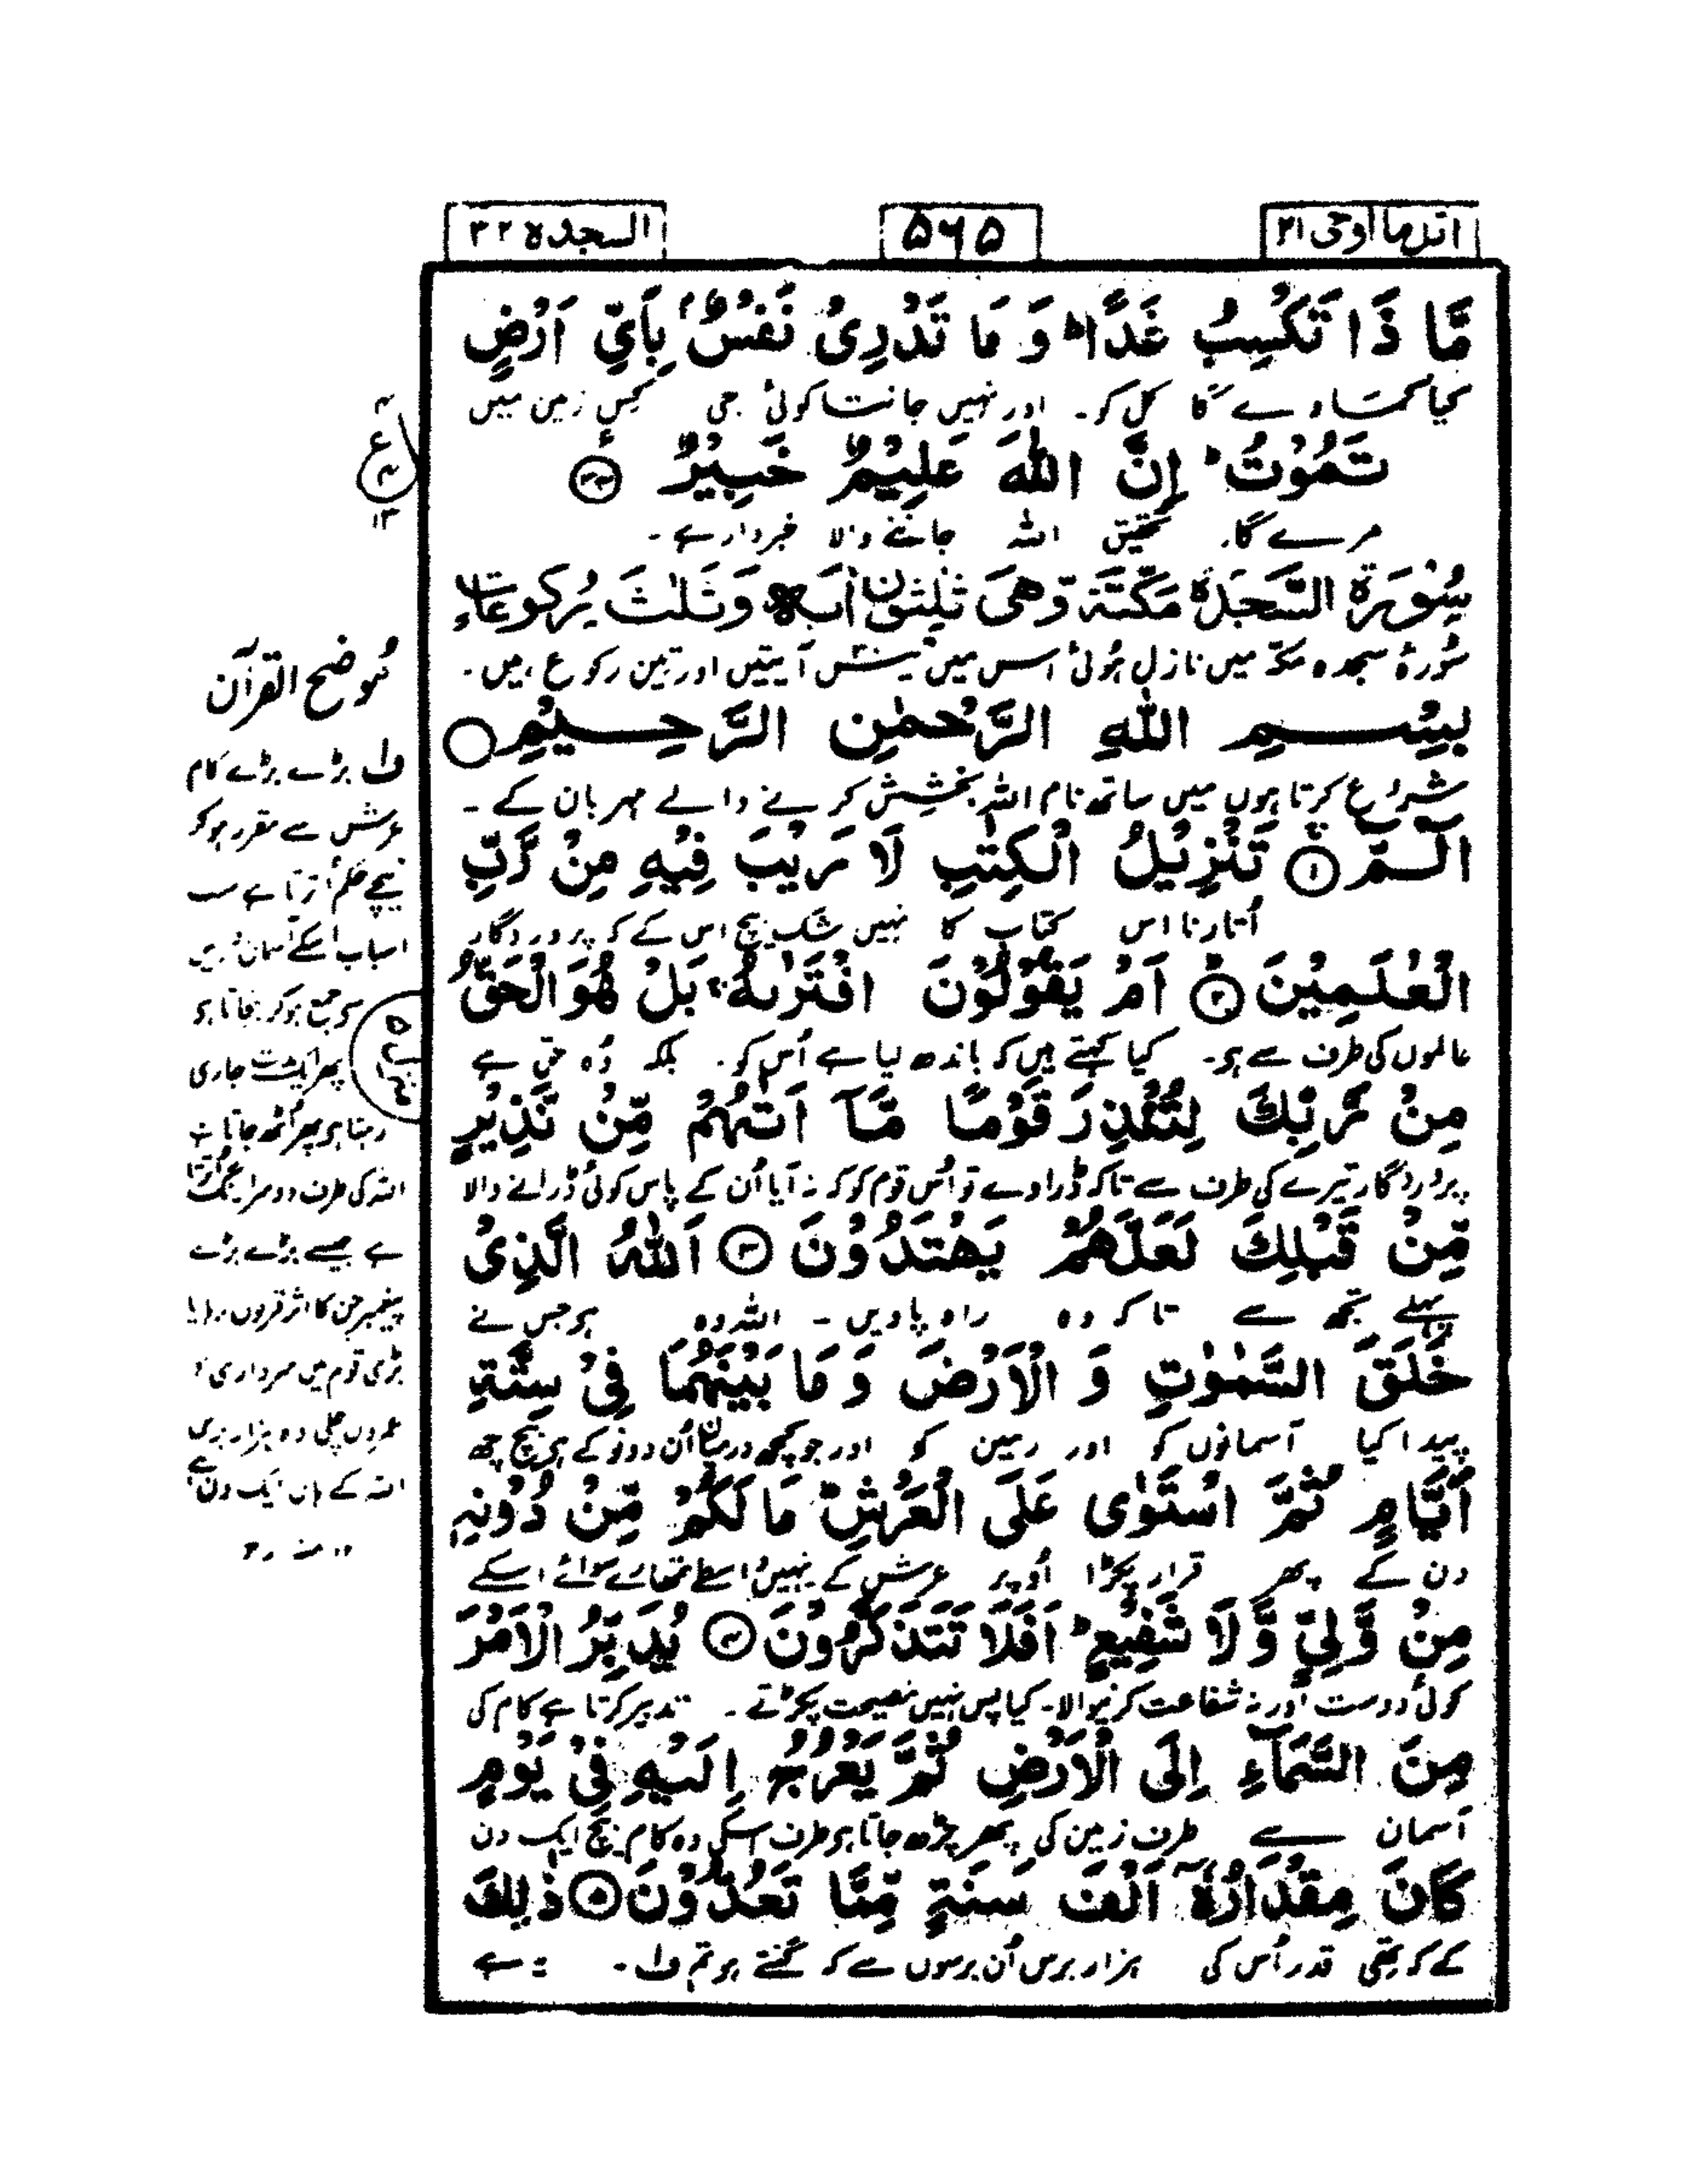 اتل ما اوحی ۲۱
۵۶۵
السجدة ۳۲
مَّا ذَا تَكْسِبُ غَدًا ؕ وَ مَا تَدْرِیْ نَفْسٌۢ بِاَیِّ اَرْضٍ
کیا کماوے گا کل کو۔ اور نہیں جانتا کوئی جی کس زمین میں
تَمُوْتُ ؕ اِنَّ اللّٰهَ عَلِیْمٌ خَبِیْرٌ ۝۳۴
مرے گا۔ تحقیق اللہ جاننے والا خبردار ہے۔
سُوْرَةُ السَّجْدَةِ مَكِّیَّةٌ وَّهِیَ ثَلٰثُوْنَ اٰیَةً وَّثَلٰثُ رُكُوْعَاتٍ
سُورۂ سجدہ مکہ میں نازل ہوئی اس میں تیس آیتیں اور تین رکوع ہیں۔
بِسْمِ اللّٰهِ الرَّحْمٰنِ الرَّحِیْمِ
شروع کرتا ہوں میں ساتھ نام اللہ بخشش کرنے والے مہربان کے۔
الٓمّٓ ۝۱ تَنْزِیْلُ الْكِتٰبِ لَا رَیْبَ فِیْهِ مِنْ رَّبِّ
اُتارنا اس کتاب کا نہیں شک بیچ اس کے کہ پروردگار
الْعٰلَمِیْنَ ۝۲ اَمْ یَقُوْلُوْنَ افْتَرٰىهُ ۚ بَلْ هُوَ الْحَقُّ
عالموں کی طرف سے ہو۔ کیا کہتے ہیں کہ باندھ لیا ہے اُس کو۔ بلکہ وُہ حق ہے
مِنْ رَّبِّكَ لِتُنْذِرَ قَوْمًا مَّاۤ اَتٰىهُمْ مِّنْ نَّذِیْرٍ
پروردگار تیرے کی طرف سے تاکہ ڈراوے تو اُس قوم کو کہ نہ آیا اُن کے پاس کوئی ڈرانے والا
مِّنْ قَبْلِكَ لَعَلَّهُمْ یَهْتَدُوْنَ ۝۳ اَللّٰهُ الَّذِیْ
پہلے تجھ سے تاکہ وہ راہ پاویں۔ اللہ وہ ہے جس نے
خَلَقَ السَّمٰوٰتِ وَ الْاَرْضَ وَ مَا بَیْنَهُمَا فِیْ سِتَّةِ
پیدا کیا آسمانوں کو اور زمین کو اور جو کچھ درمیان اُن دونو کے ہے بیچ چھ
اَیَّامٍ ثُمَّ اسْتَوٰی عَلَی الْعَرْشِ ؕ مَا لَكُمْ مِّنْ دُوْنِهٖ
دن کے پھر قرار پکڑا اُوپر عرش کے نہیں واسطے تمھارے سوائے اسکے
مِنْ وَّلِیٍّ وَّ لَا شَفِیْعٍ ؕ اَفَلَا تَتَذَكَّرُوْنَ ۝۴ یُدَبِّرُ الْاَمْرَ
کوئی دوست اور نہ شفاعت کرنیوالا۔ کیا پس نہیں نصیحت پکڑتے۔ تدبیر کرتا ہے کام کی
مِنَ السَّمَآءِ اِلَی الْاَرْضِ ثُمَّ یَعْرُجُ اِلَیْهِ فِیْ یَوْمٍ
آسمان سے طرف زمین کی پھر چڑھ جاتا ہے طرف اسکی وہ کام بیچ ایک دن
كَانَ مِقْدَارُهٗۤ اَلْفَ سَنَةٍ مِّمَّا تَعُدُّوْنَ ۝۵ ذٰلِكَ
کے کہ تھی قدر اُس کی ہزار برس اُن برسوں سے کہ گنتے ہو تم ف۱۔ یہ ہے
ع
مُوضح القرآن
ف۱ بڑے بڑے کام
عرش سے مقرر ہو کر
نیچے حکم اُترتا ہے سب
اسباب اُسکے آسمان زمیں
سے جمع ہو کر بنجاتا ہے
پھر ایک مدت جاری
رہتا ہے پھر اُٹھ جاتا ہے
اللہ کی طرف دوسرا رنگ اُترتا
ہے جیسے بڑے بڑے
پیغمبر جن کا اثر قرنوں رہا یا
بڑی قوم میں سرداری
عمروں چلی وہ ہزار برس
اللہ کے ہاں ایک دن ہے